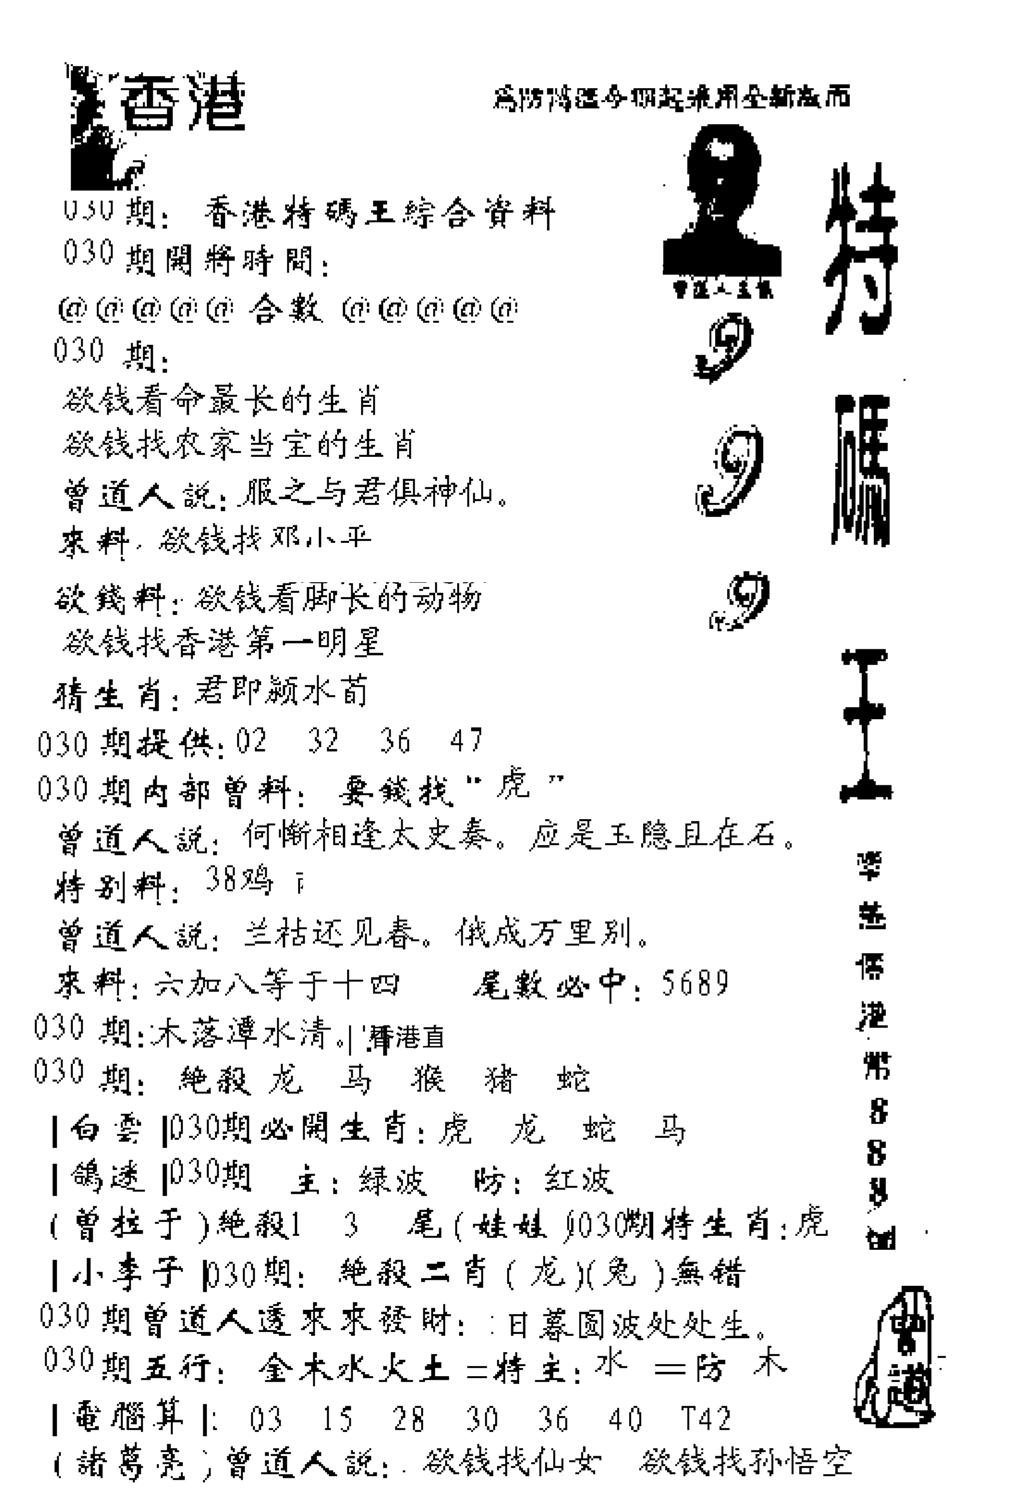 香港
為防偽區今期起采用全新版面
030期: 香港特碼王綜合資料
030期開將時間:
@@@@@合數@@@@@
030 期:
欲钱看命最长的生肖
欲钱找农家当宝的生肖
曾道人説:服之与君俱神仙。
來料: 欲钱找邓小平
欲錢料:欲钱看脚长的动物
欲钱找香港第一明星
猜生肖:君即颍水荀
030期提供:02 32 36 47
030期内部曾料: 要錢找“虎”
曾道人説: 何惭相逢太史奏。应是玉隐且在石。
特别料: 38鸡
曾道人説: 兰枯还见春。俄成万里别。
來料:六加八等于十四 尾數必中:5689
030期:木落潭水清。
030期: 絶殺 龙 马 猴 猪 蛇
|白雲|030期必開生肖:虎 龙 蛇 马
|鴿迷|030期 主:緑波 防:紅波
(曾拉于)絶殺1 3 尾(娃娃)030期特生肖:虎
|小李子|030期: 絶殺二肖(龙)(兔)無錯
030期曾道人透來來發財: 日暮圆波处处生。
030期五行: 金木水火土=特主:水 =防 木
|電腦算|: 03 15 28 30 36 40 T42
(諸葛亮)曾道人説: 欲钱找仙女 欲钱找孙悟空
曾道人主
9
9
9
特碼王
港幣888
曾道